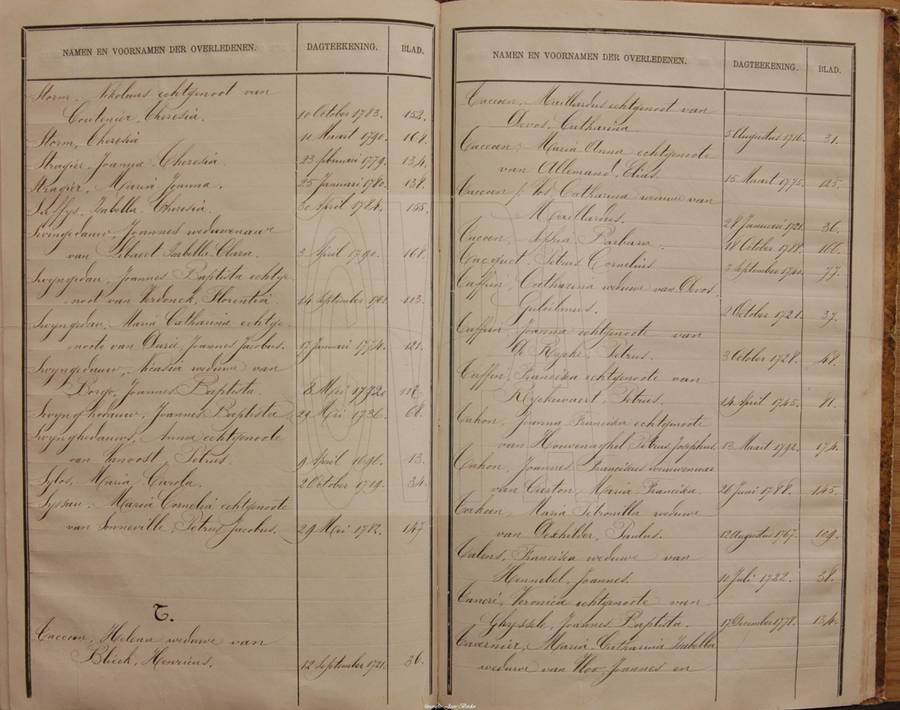 NAMEN EN VOORNAMEN DER OVERLEDENEN. DAGTEEKENING. BLAD.
Storm, Nikolaus echtgenoot van
Coutenier, Theresia. 10 October 1783. 152.
Storm, Theresia 11 Maart 1790. 168.
Stragier, Joanna Theresia. 23 februari 1779. 134.
Stragier, Maria Joanna. 25 Januari 1780. 138.
Isabella Theresia. 30 April 1784. 155.
Swingedauw, Joannes weduwenaar
van Isabella Clara. 3 April 1790. 168.
Swyngedau, Joannes Baptista echtge
noot van Verdonck, Florentia 14 September 1761. 113.
Swyngedau, Maria Catharina echtge-
noote van Joannes Jacobus. 17 Januari 1774. 121.
Swyngedauw, weduwe van
Joannes Baptista. 8 Mei 1792.
Swynghedauw, Joannes Baptista 21 Mei 1736. 68.
Swynghedauw, Anna echtgenoote
van Petrus. 9 April 1696. 13.
Sylos, Maria Carola. 2 October 1719. 34.
Syssau, Maria Cornelia echtgenoote
van Petrus Jacobus. 29 Mei 1782. 147
T.
Taccoen, Helena weduwe van
Blieck, Henricus. 12 September 1721. 36.
NAMEN EN VOORNAMEN DER OVERLEDENEN. DAGTEEKENING. BLAD.
Taccoen, Maillardus echtgenoot van
Devos, Catharina 5 Augustus 1716. 31.
Taccoen, Maria Anna echtgenoote
van Allemand, Elias. 15 Maart 1775. 125.
Taccoen, Catharina weduwe van
Maillardus. 28 Januari 1721. 36.
Tacoen, Sophia Barbara. 18 October 1788. 166.
Tacquet, Petrus Cornelius. 7 September 1740. 77.
Taffin, Catharina weduwe van Devos,
Gulielmus. 2 October 1721. 37.
Taffin, Joanna echtgenoote van
De Rycke, Petrus. 3 October 1728. 48.
Taffin, Franciska echtgenoote van
Ryckewaert, Petrus. 14 April 1745. 81.
Tahon, Joanna Franciska echtgenoote
van Houvenaghel, Petrus Josephus. 13 Maart 1792. 174.
Tahon, Joannes Franciscus weduwenaar
van Maria Franciska. 26 Juni 1788. 165.
Tahoen, Maria Petronilla weduwe
van Deschilder, Paulus. 12 Augustus 1767. 109.
Talens, Franciska weduwe van
Hennebel, Joannes. 10 Juli 1722. 38.
Tancré, Veronica echtgenoote van
Ghyssele, Joannes Baptista. 17 December 1778. 134.
Tavernier, Maria Catharina Isabella
weduwe van Joannes en